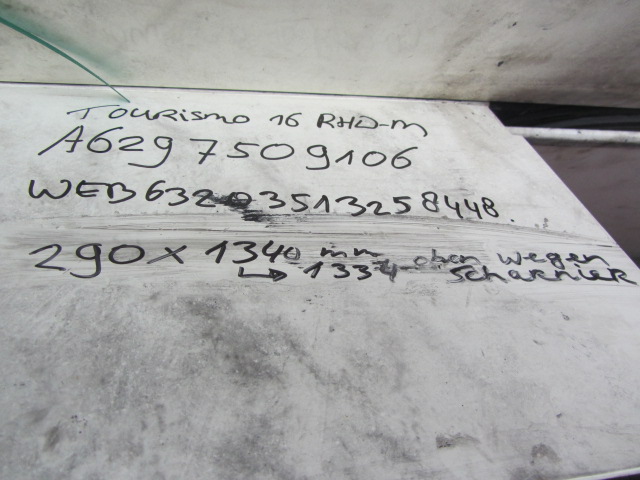 TOURISMO 16 RHD-M
A6297509106
WEB63203513258448.
290 x 1340 mm oben wegen
↳ 1334 Scharnier